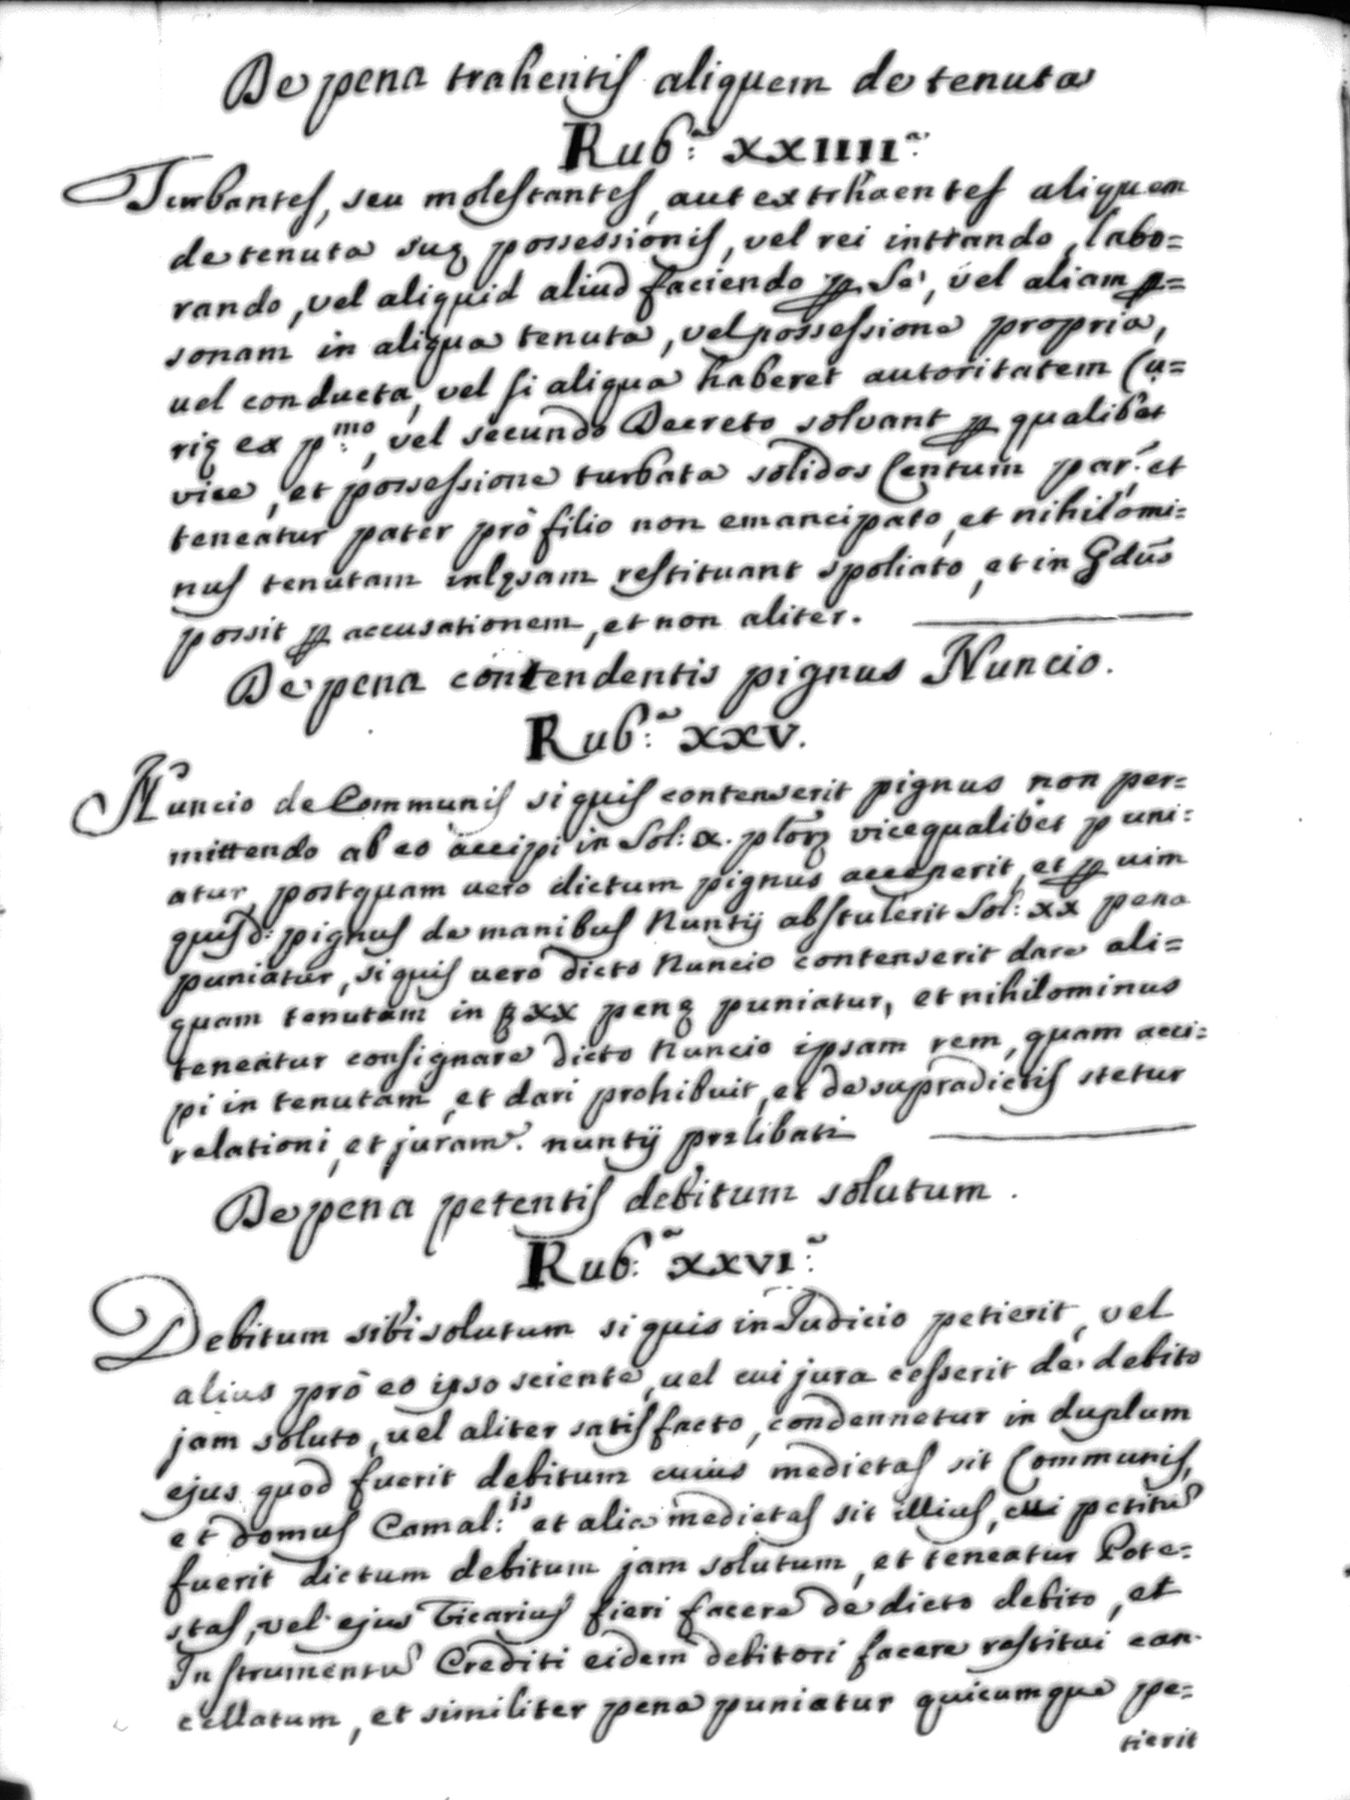 De pena trahentis aliquem de tenuta
Rub:ª XXIIIIª:
Turbantes, seu molestantes, aut extrhaentes aliquem
de tenuta suę possessionis, vel rei intrando, labo=
rando, vel aliquid aliud faciendo ꝑ Se, vel aliam ꝑ=
sonam in aliqua tenuta, vel possessione propria,
uel conducta, vel si aliqua haberet autoritatem Cu=
rię ex p:mo, vel secundo Decreto solvant ꝑ qualibet
vice, et possessione turbata solidos Centum par: et
teneatur pater prò filio non emancipato, et nihilomi=
nus tenutam restituant spoliato, et in
possit ꝑ accusationem, et non aliter.
De pena contendentis pignus Nuncio.
Rub:ª XXV.
Nuncio de Communis si quis contenserit pignus non per=
mittendo ab eo accipi in Sol: x. vice qualibet puni=
atur, postquam vero dictum pignus acceperit, et ꝑ uim
quis d: pignus de manibus Nuntij abstulerit Sol: xx pena
puniatur, si quis vero dicto Nuncio contenserit dare ali=
quam tenutam in xx penę puniatur, et nihilominus
teneatur consignare dicto Nuncio ipsam rem, quam acci=
pi in tenutam, et dari prohibuit, et de supradictis stetur
relationi, et juram: nuntij prælibati
De pena petentis debitum solutum.
Rub:ª XXVI:ª
Debitum sibi solutum si quis in Judicio petierit, vel
alius prò eo ipso sciente, uel cui jura cesserit de debito
jam soluto, uel aliter satisfacto, condennetur in duplum
ejus quod fuerit debitum cuius medietas sit Communis,
et domus Camal:is et alia medietas sit illius, cui petitũ
fuerit dictum debitum jam solutum, et teneatur Pote=
stas, vel ejus Vicarius fieri facere de dicto debito, et
Instrumentũ Crediti eidem debitori facere restitui can=
cellatum, et similiter pena puniatur quicumque pe=
tierit